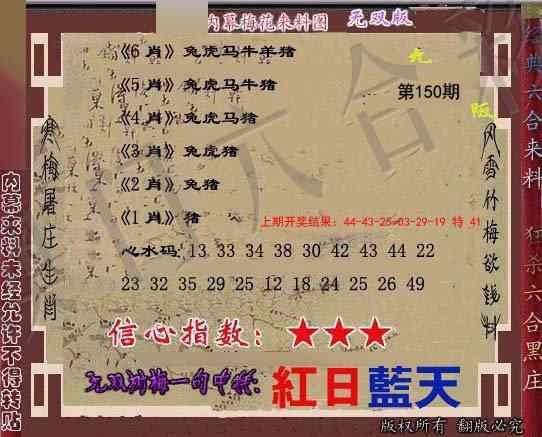 内幕梅花来料图 无双版
《6 肖》兔虎马牛羊猪
《5 肖》兔虎马牛猪
第150期
《4 肖》兔虎马猪
《3 肖》兔虎猪
《2 肖》兔猪
《1 肖》猪
上期开奖结果：44-43-25-03-29-19 特 41
心水码: 13 33 34 38 30 42 43 44 22
23 32 35 29 25 12 18 24 25 26 49
信心指数：★★★
一句中特:
紅日藍天
版权所有 翻版必究
寒梅屠庄生肖
风雪竹梅欲钱料
内幕来料未经允许不得转贴
经典六合来料 狂杀六合黑庄